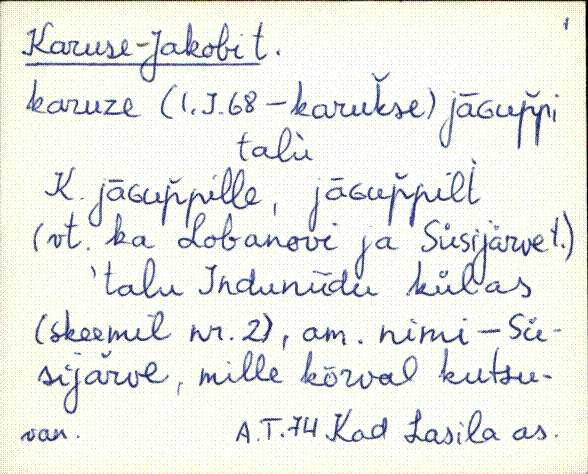 Karuse-Jakobi t.
karuze (1.I.68 – karuk̆se) jāGup̆pi
talù
K. jāGup̆pille, jāGup̆pilt
(vt. ka Lobanovi ja Süsijärve t.)
'talu Induniidu külas
(skeemil nr. 2), am. nimi – Sü-
sijärve, mille kõrval kutsu-
van. A.T.74 Kad Lasila as.